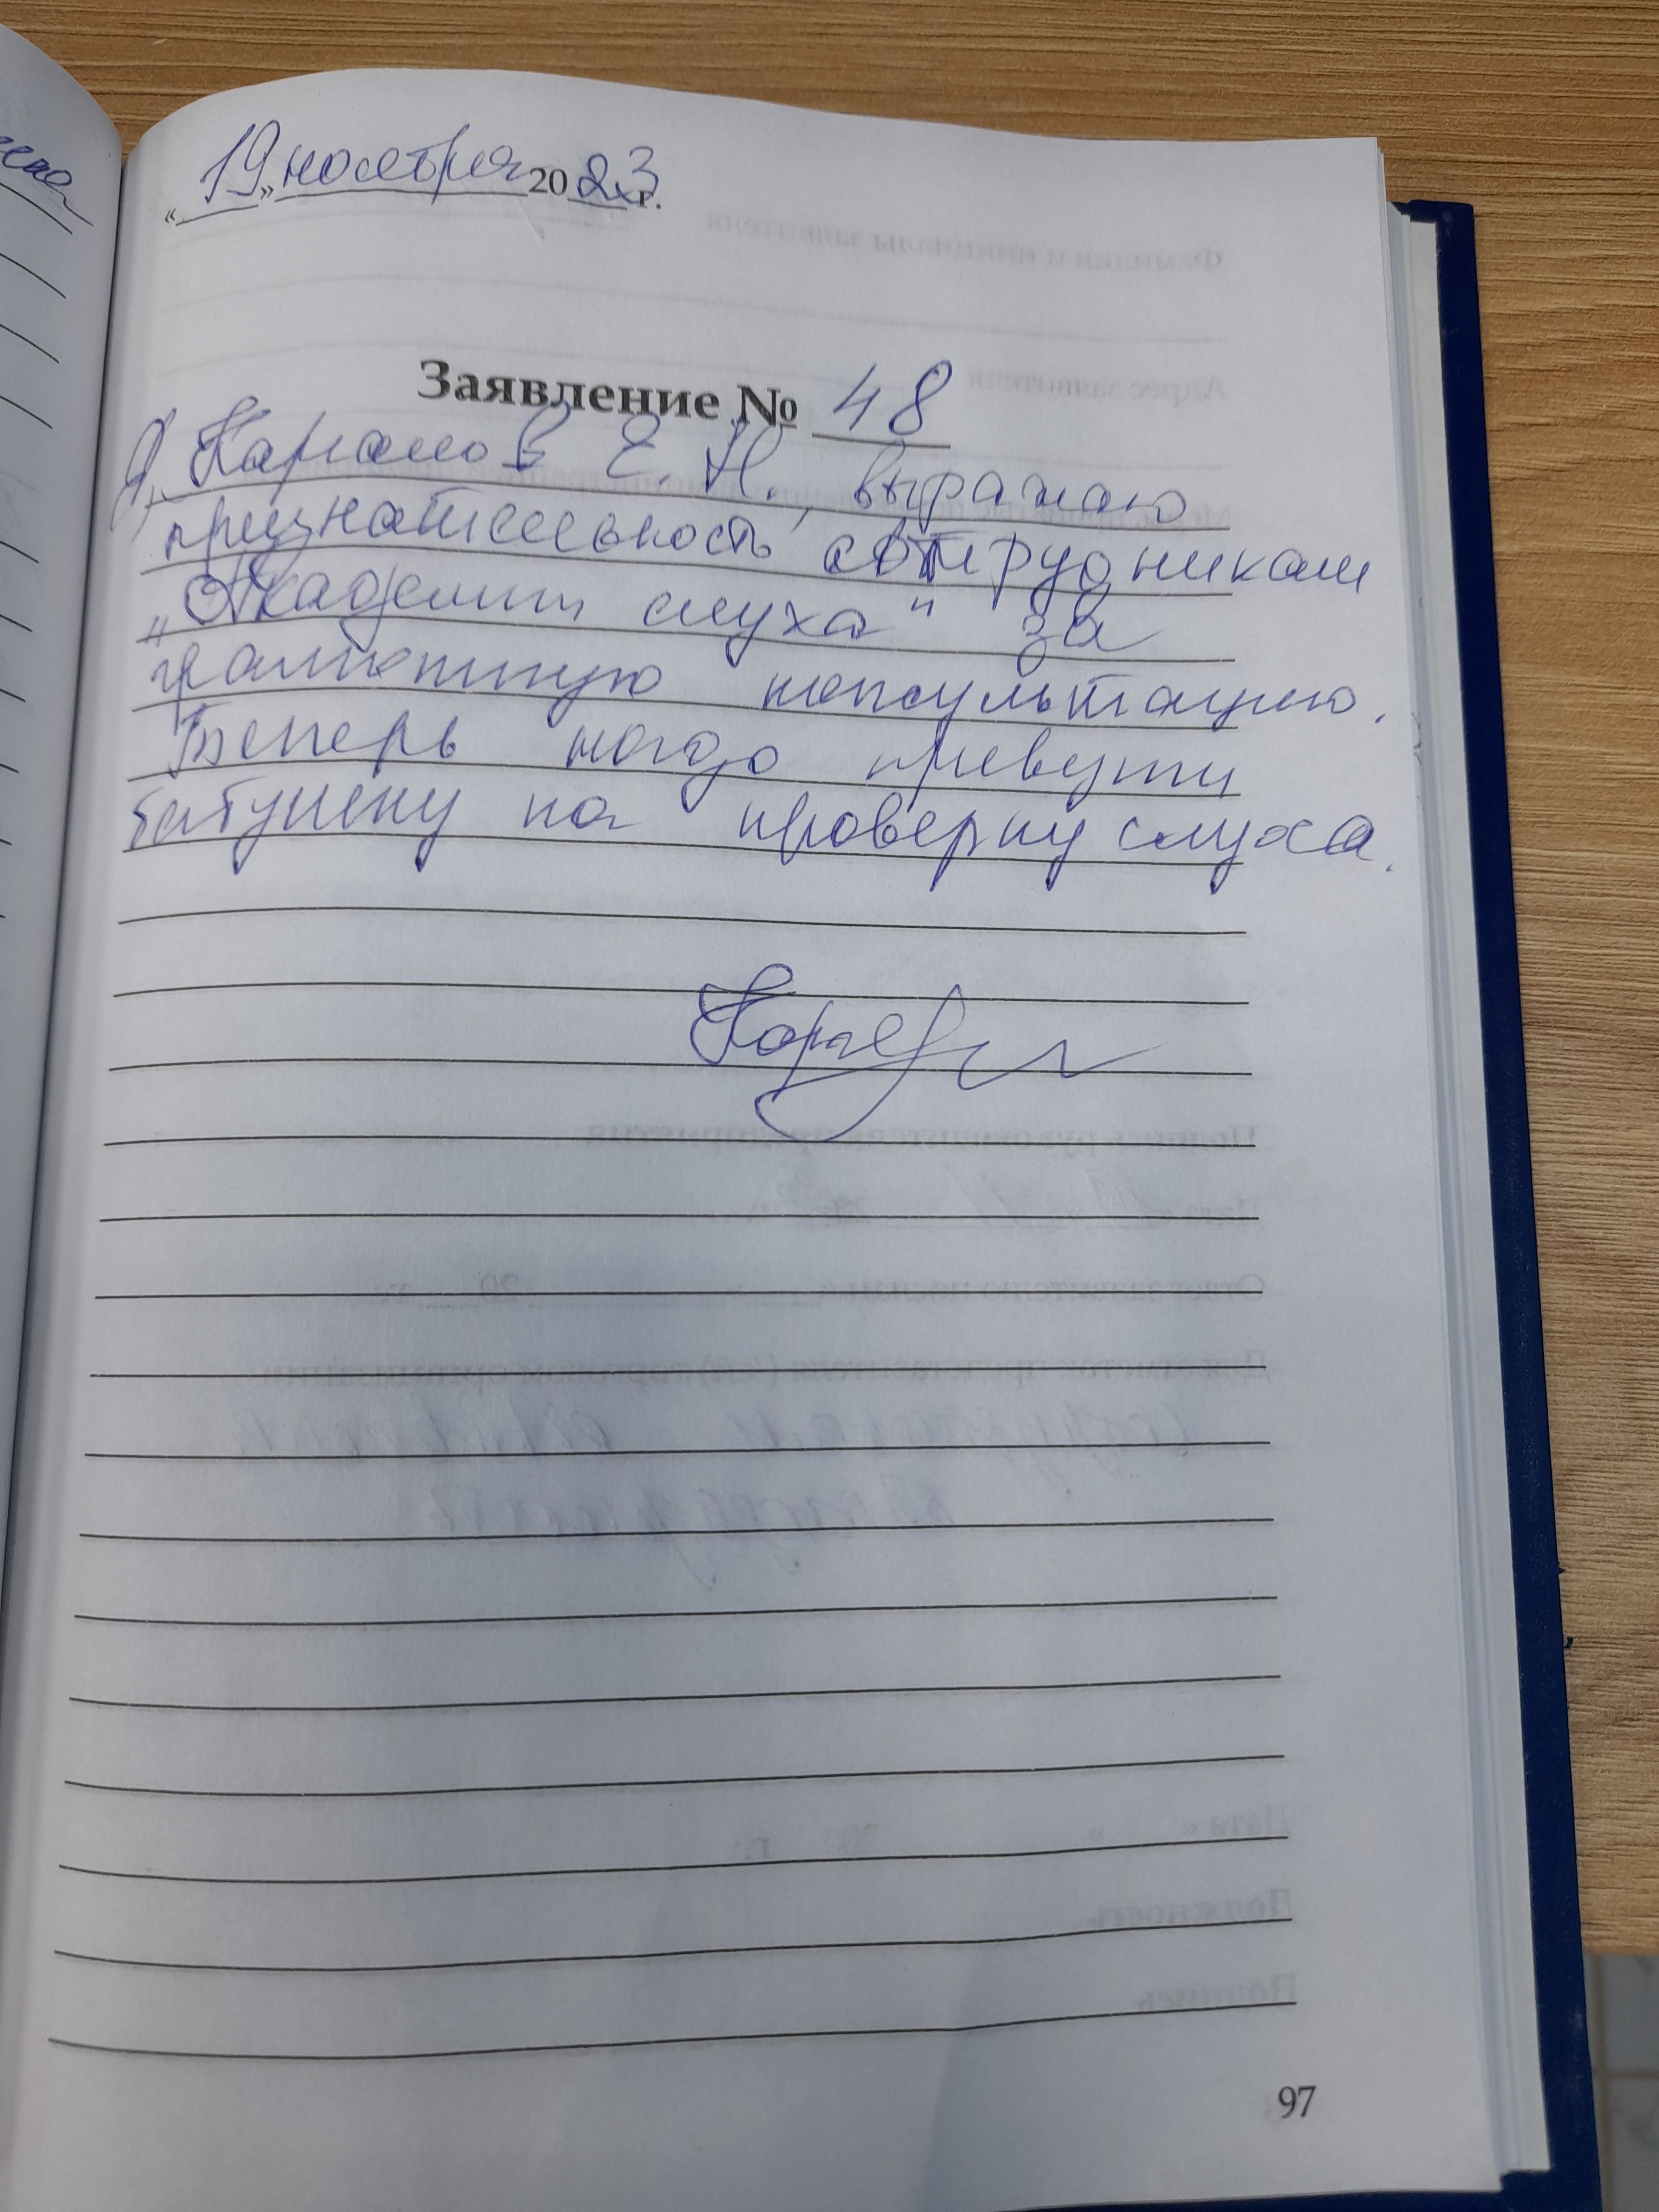 «19» ноября 2023 г.
Заявление № 48
Я, Е. Н., выражаю
признательность сотрудникам
„Академии слуха" за
грамотную консультацию.
Теперь надо привезти
бабушку на проверку слуха.
97